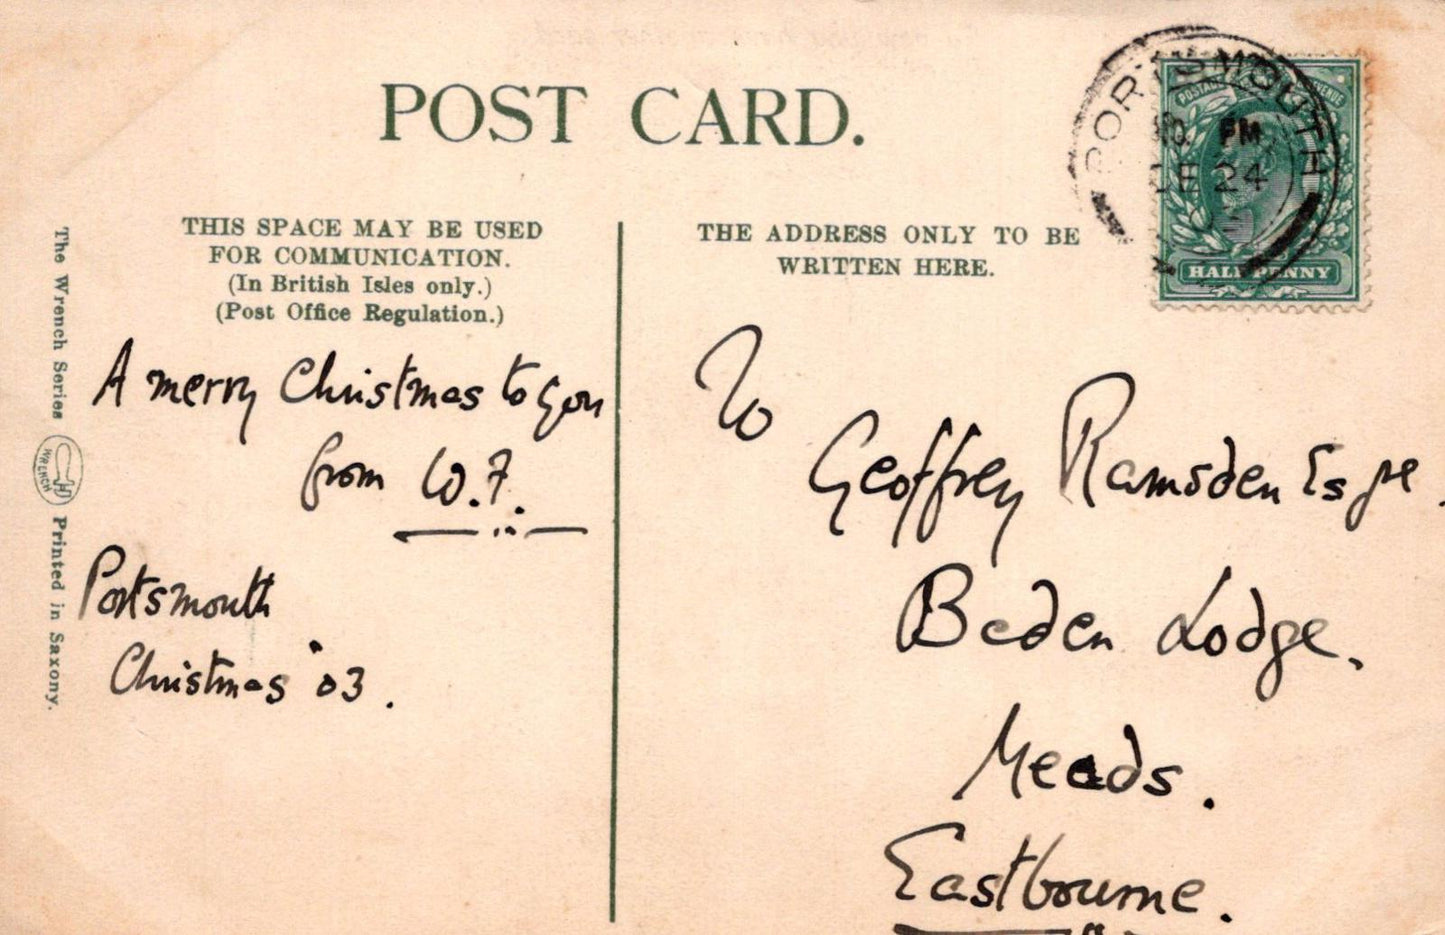 POST CARD.
THIS SPACE MAY BE USED
FOR COMMUNICATION.
(In British Isles only.)
(Post Office Regulation.)
THE ADDRESS ONLY TO BE
WRITTEN HERE.
PORTSMOUTH
PM
DE 24
POSTAGE REVENUE
HALFPENNY
The Wrench Series
WRENCH
Printed in Saxony.
A merry Christmas to you
from W.F.
Portsmouth
Christmas '03.
To
Geoffrey Ramsden Esqre.
Beden Lodge.
Meads.
Eastbourne.